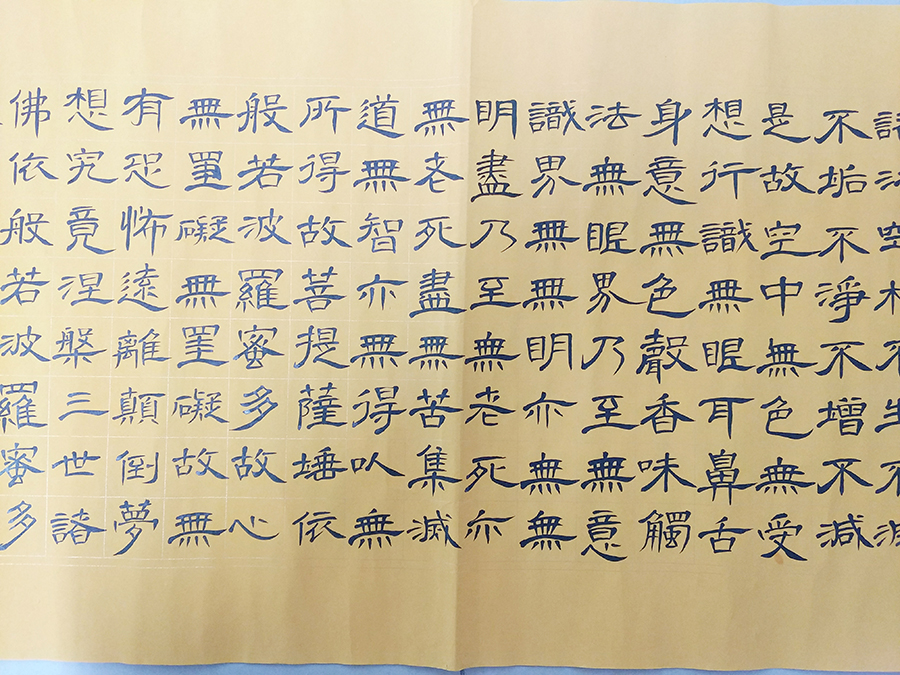 諸法空相不生不滅
不垢不淨不增不減
是故空中無色無受
想行識無眼耳鼻舌
身意無色聲香味觸
法無眼界乃至無意
識界無無明亦無無
明盡乃至無老死亦
無老死盡無苦集滅
道無智亦無得以無
所得故菩提薩埵依
般若波羅蜜多故心
無罣礙無罣礙故無
有恐怖遠離顛倒夢
想究竟涅槃三世諸
佛依般若波羅蜜多